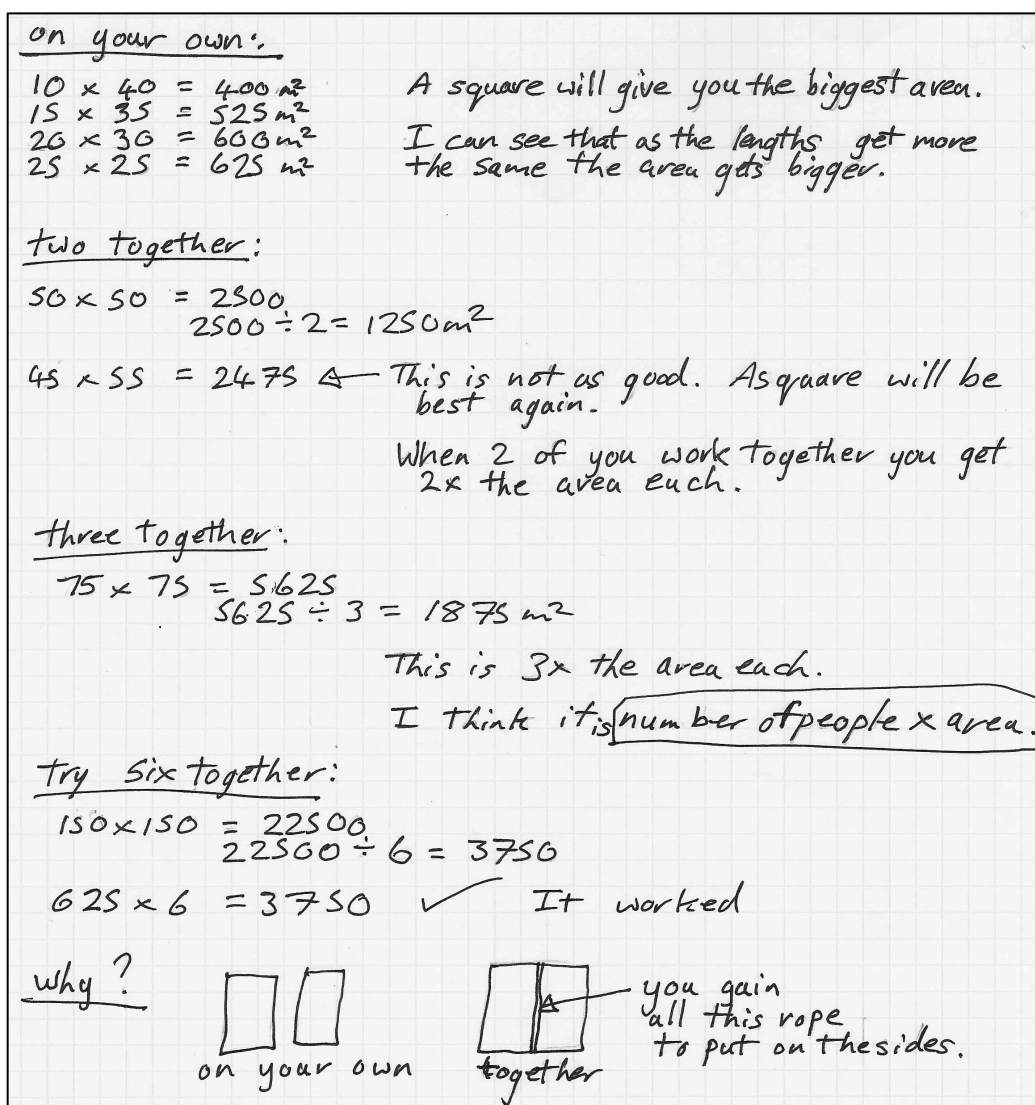 on your own:
10 × 40 = 400 m²
15 × 35 = 525 m²
20 × 30 = 600 m²
25 × 25 = 625 m²
A square will give you the biggest area.
I can see that as the lengths get more
the same the area gets bigger.
two together:
50 × 50 = 2500
2500 ÷ 2 = 1250 m²
45 × 55 = 2475
This is not as good. A sqaure will be
best again.
When 2 of you work together you get
2x the area each.
three together:
75 × 75 = 5625
5625 ÷ 3 = 1875 m²
This is 3x the area each.
I think it is number of people × area.
try six together:
150 × 150 = 22500
22500 ÷ 6 = 3750
625 × 6 = 3750 ✓ It worked
why?
on your own
together
you gain
all this rope
to put on the sides.